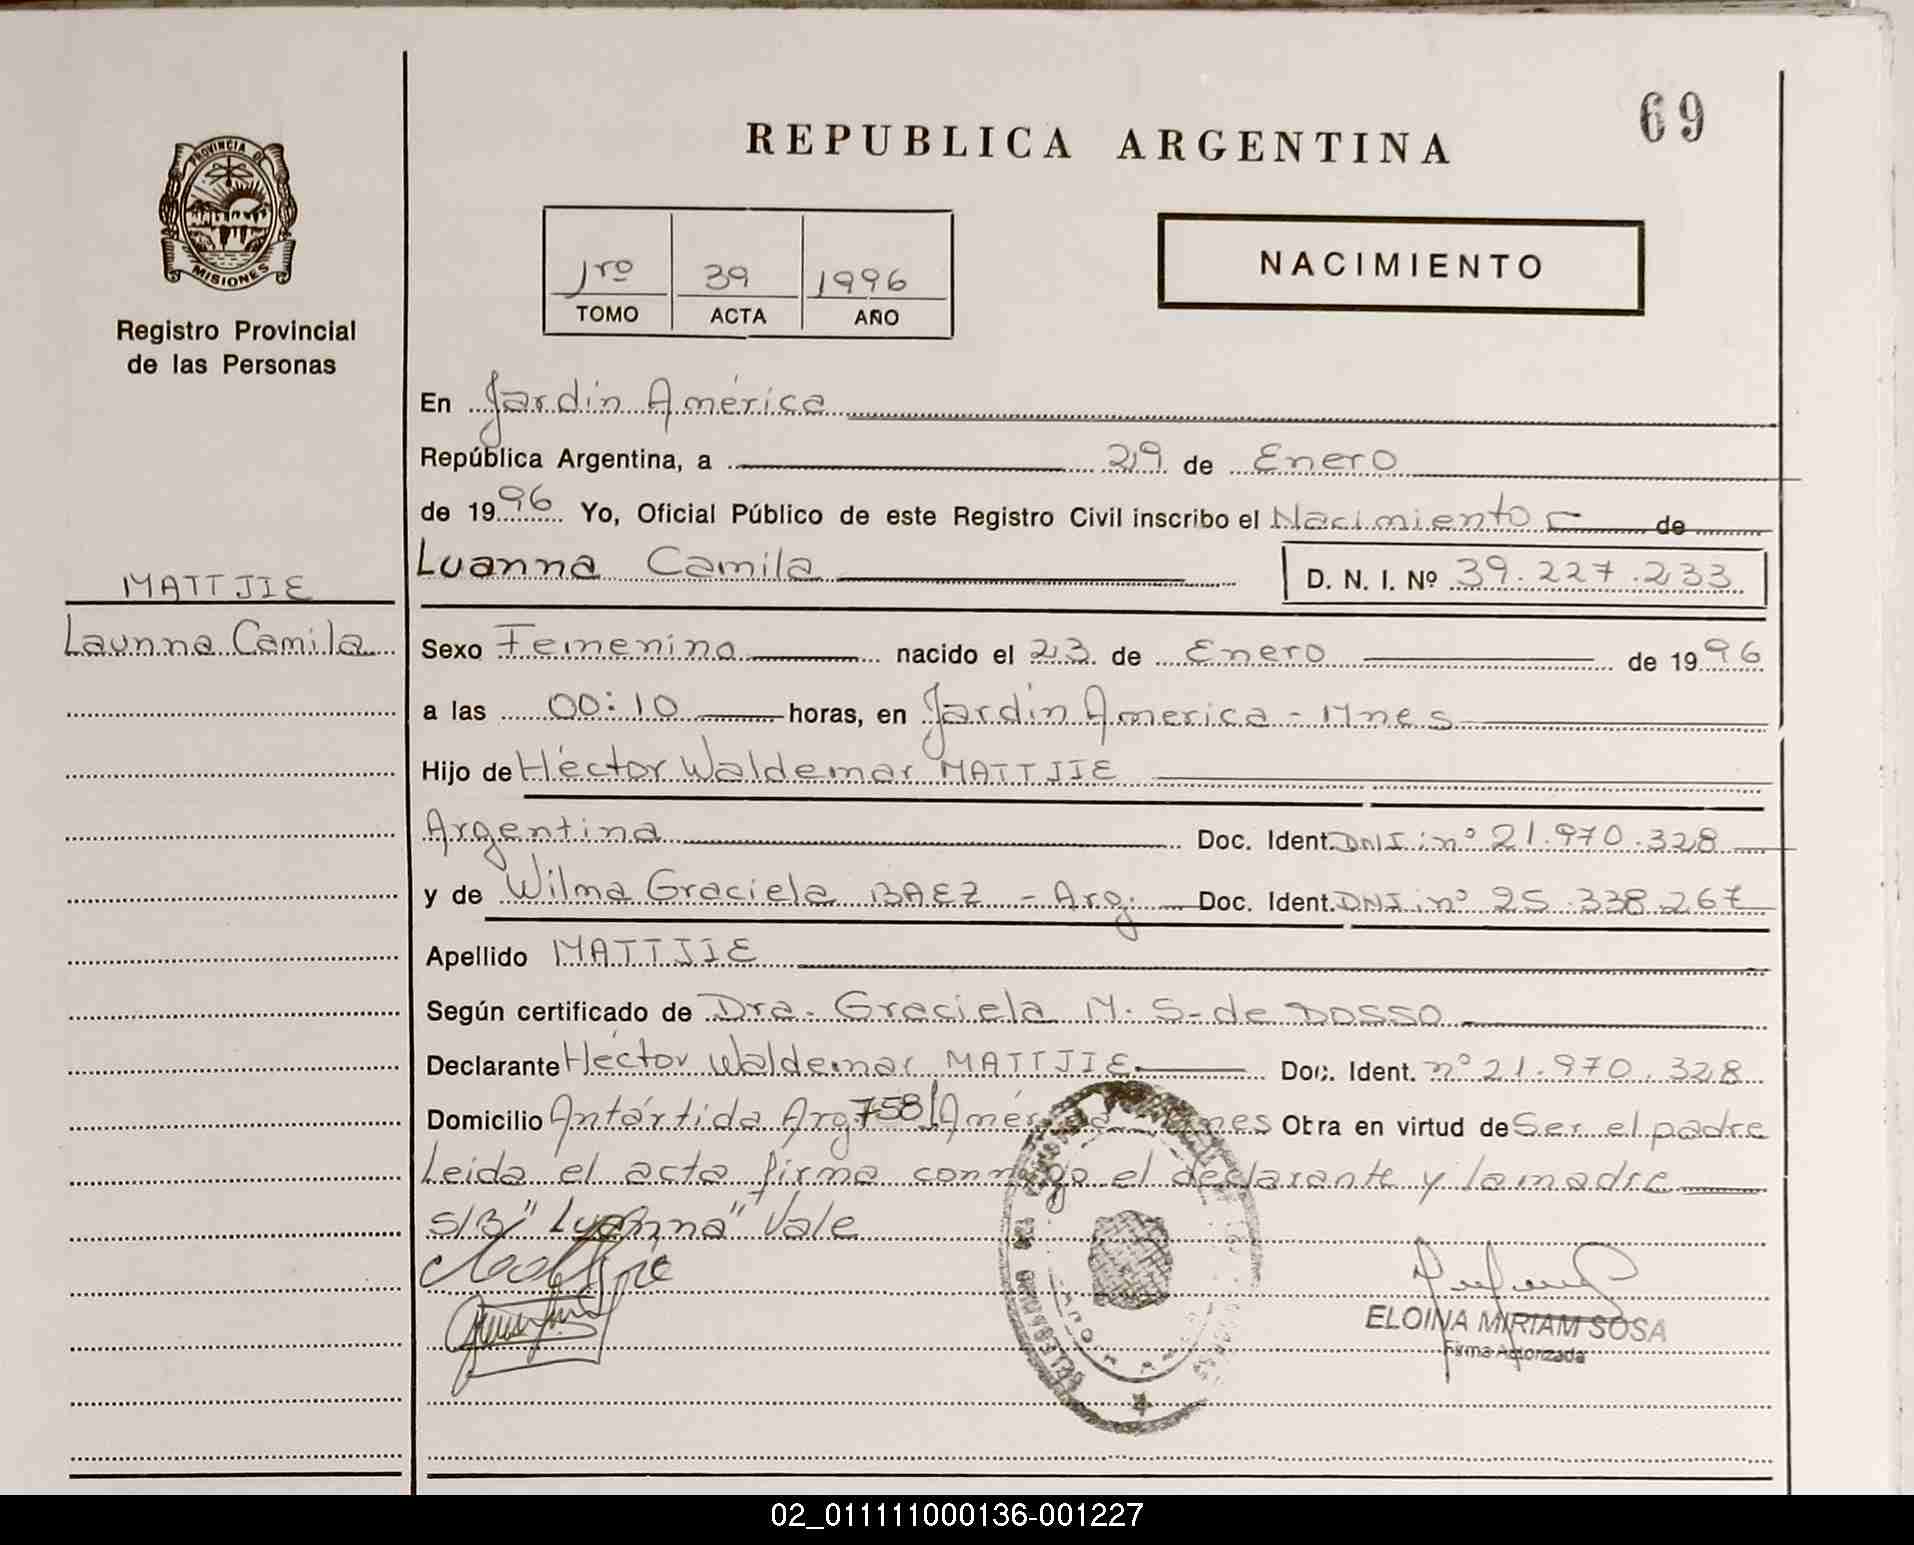 69
REPUBLICA ARGENTINA
PROVINCIA DE
MISIONES
Registro Provincial
de las Personas
1ro 39 1996
TOMO ACTA AÑO
NACIMIENTO
En Jardín América
República Argentina, a 29 de Enero
de 1996 Yo, Oficial Público de este Registro Civil inscribo el Nacimiento de
Luanna Camila D. N. I. Nº 39.227.233
MATTJIE
Launna Camila
Sexo Femenino nacido el 23 de Enero de 1996
a las 00:10 horas, en Jardín America - Mnes
Hijo de Héctor Waldemar MATTJIE
Argentina Doc. Ident. DNI nº 21.970.328
y de Wilma Graciela BAEZ - Arg. Doc. Ident. DNI nº 25.338.267
Apellido MATTJIE
Según certificado de Dra. Graciela M. S- de DOSSO
Declarante Héctor Waldemar MATTJIE Doc. Ident. nº 21.970.328
Domicilio Antártida Arg. 758 J América Mnes Obra en virtud de Ser el padre
Leida el acta firma conmigo el declarante y la madre
S/B "Luanna" Vale
ELOINA MIRIAM SOSA
Firma Autorizada
02_011111000136-001227